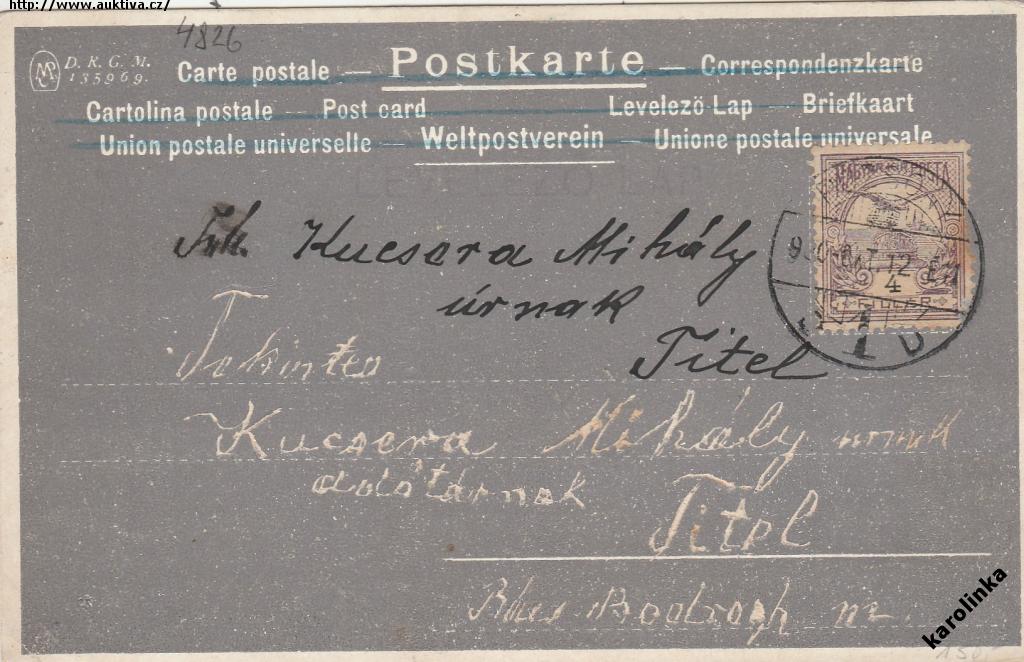 http://www.auktiva.cz/
4826
D. R. G. M.
135969.
Carte postale — Postkarte — Correspondenzkarte
Cartolina postale — Post card Levelező Lap — Briefkaart
Union postale universelle — Weltpostverein — Unione postale universale
LEVELEZŐ-LAP
MAGYAR POSTA
Kucsera Mihály
úrnak
Titel
12
4
Tekintes
Kucsera Mihály urnak
Titel
Bács Bodrogh m.
karolinka
150,-